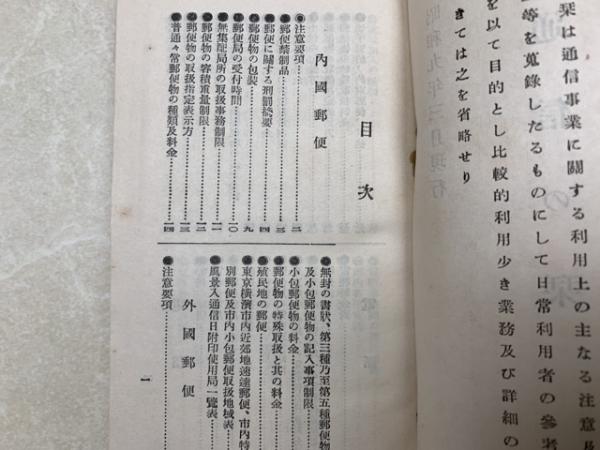 栞は通信事業に關する利用上の主なる注意及
等を蒐錄したるものにして日常利用者の參考
を以て目的とし比較的利用少き業務及び詳細の
きては之を省略せり
目次
內國郵便
●注意要項……二
●郵便禁制品……三
●郵便に關する刑罰摘要……四
●郵便物の包裝……九
●郵便局の受付時間……一〇
●無集配局所の取扱事務制限……一一
●郵便物の容積重量制限……一二
●郵便物の取扱指定表示方……一三
●普通々常郵便物の種類及料金……一四
●無封の書狀、第三種乃至第五種郵便物
及小包郵便物の記入事項制限
●小包郵便物の料金
●郵便物の特殊取扱と其の料金
●殖民地の郵便
●東京橫濱市內近郊地速達郵便、市內特
別郵便及市內小包郵便取扱地域表
●風景入通信日附印使用局一覽表
外國郵便
●注意要項
一